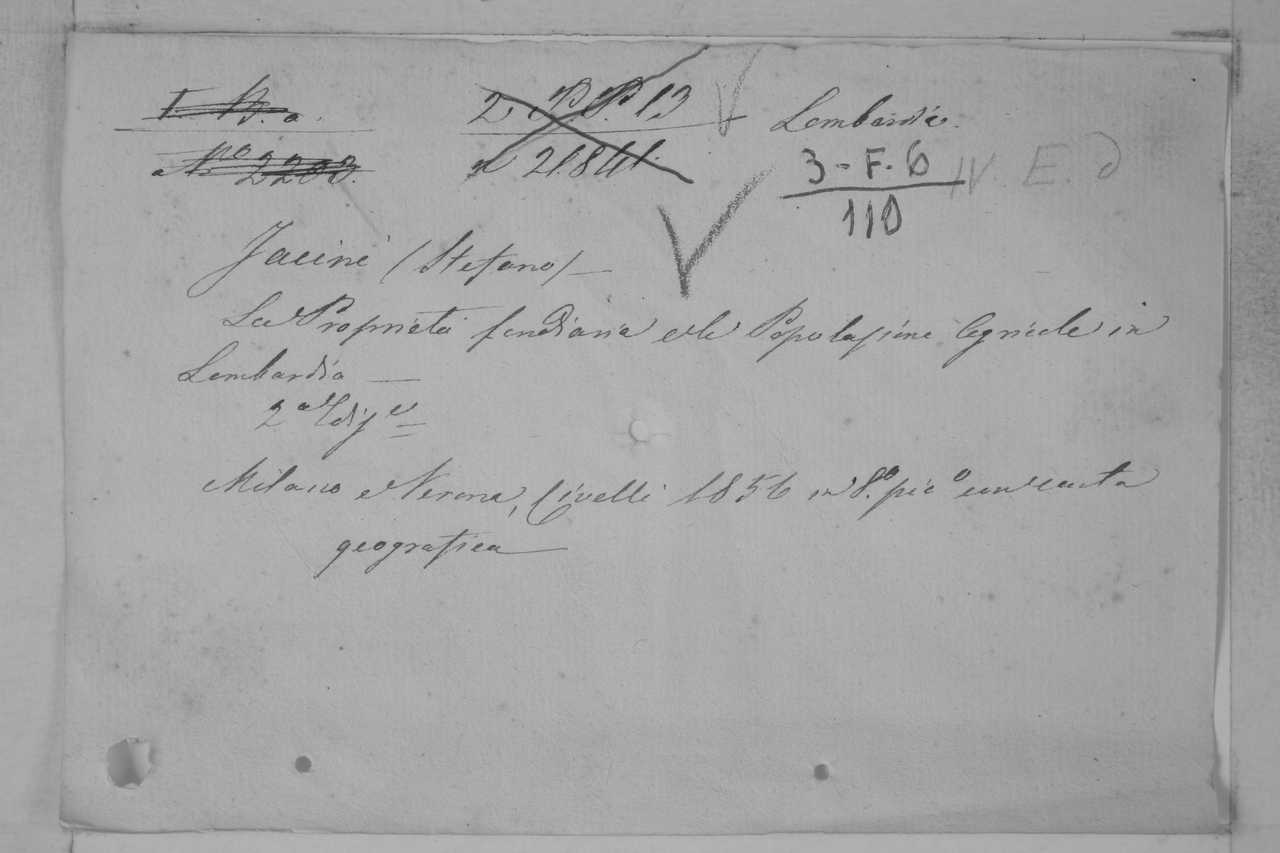 I. B. a. 2 B. P. 13 Lombardia.
No 2203. n 21841. 3-F.6 IV. E. d
110
Jacini (Stefano) —
La Proprietà fondiaria e le Popolazioni Agricole in
Lombardia —
2a Edize
Milano e Verona, Civelli 1856 in 8.o pico con carta
geografica —